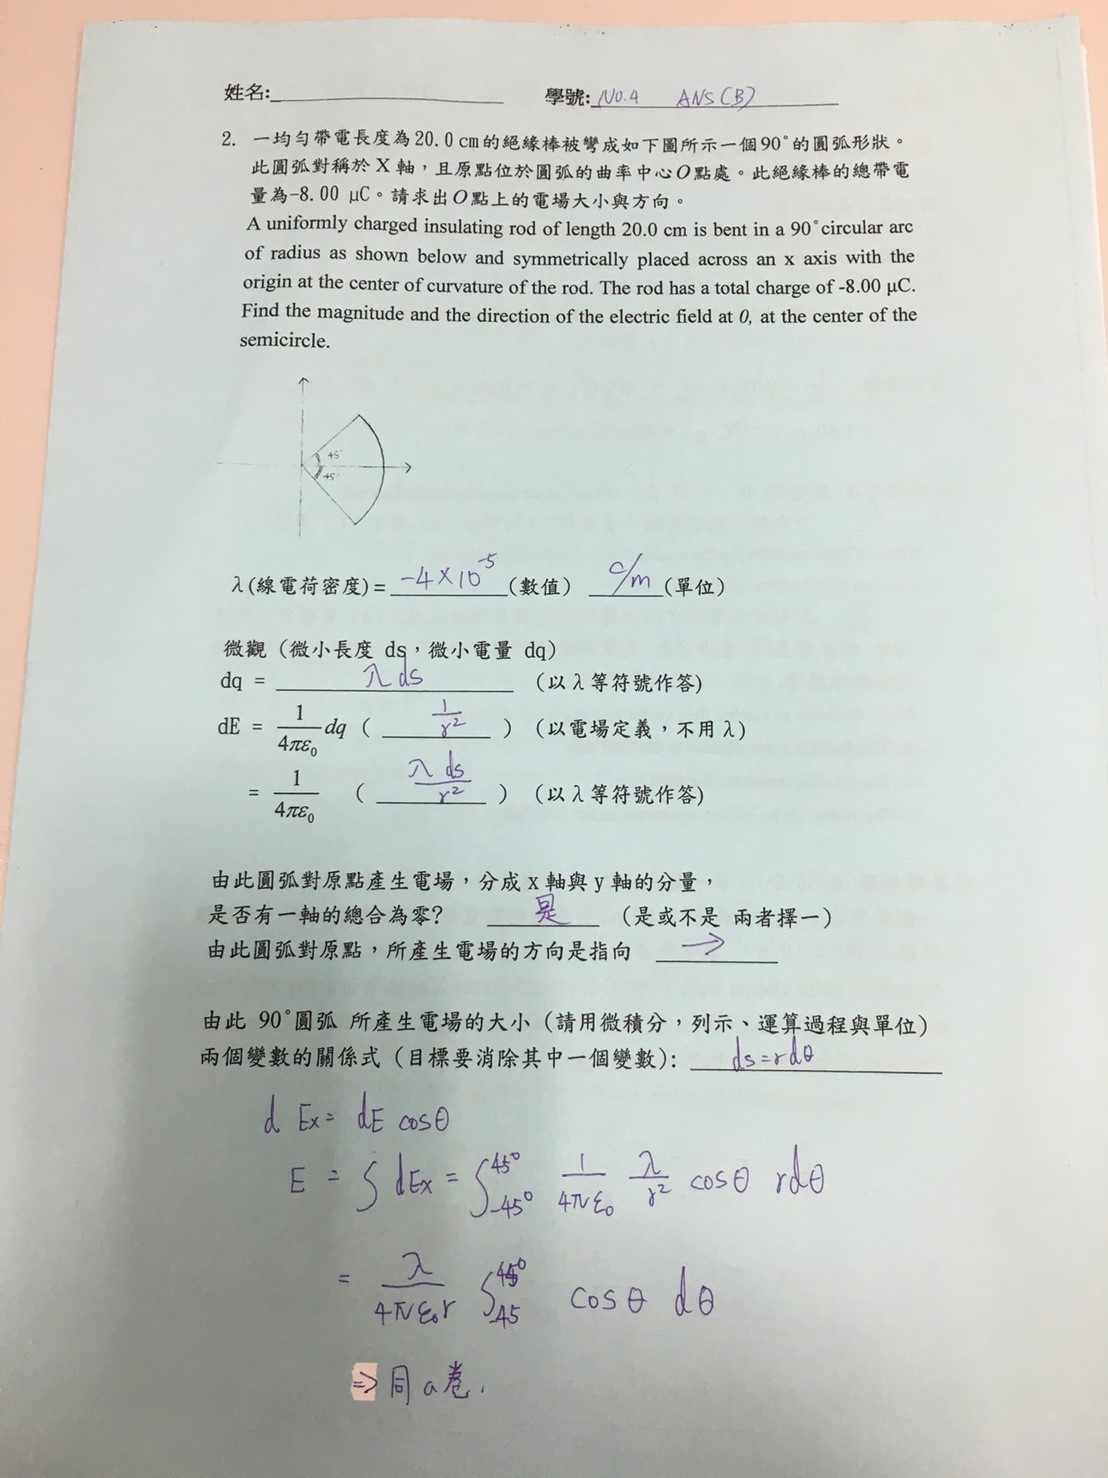 姓名:
學號: NO.4 ANS(B)
2. 一均勻帶電長度為20.0 cm的絕緣棒被彎成如下圖所示一個90°的圓弧形狀。
此圓弧對稱於 X 軸,且原點位於圓弧的曲率中心O點處。此絕緣棒的總帶電
量為-8.00 μC。請求出O點上的電場大小與方向。
A uniformly charged insulating rod of length 20.0 cm is bent in a 90°circular arc
of radius as shown below and symmetrically placed across an x axis with the
origin at the center of curvature of the rod. The rod has a total charge of -8.00 μC.
Find the magnitude and the direction of the electric field at 0, at the center of the
semicircle.
45°
45°
λ(線電荷密度)= -4×10⁻⁵ (數值) c/m (單位)
微觀 (微小長度 ds,微小電量 dq)
dq = λ ds (以λ等符號作答)
dE = 1/4πε₀ dq ( 1/r² ) (以電場定義,不用λ)
= 1/4πε₀ ( λ ds/r² ) (以λ等符號作答)
由此圓弧對原點產生電場,分成 x 軸與 y 軸的分量,
是否有一軸的總合為零? 是 (是或不是 兩者擇一)
由此圓弧對原點,所產生電場的方向是指向 →
由此 90°圓弧 所產生電場的大小 (請用微積分,列示、運算過程與單位)
兩個變數的關係式 (目標要消除其中一個變數): ds=rdθ
d Ex= dE cosθ
E = ∫ dEx = ∫₋₄₅°⁴⁵° 1/4πε₀ λ/r² cosθ rdθ
= λ/4πε₀r ∫₋₄₅⁴⁵° cosθ dθ
⇒ 同a卷.